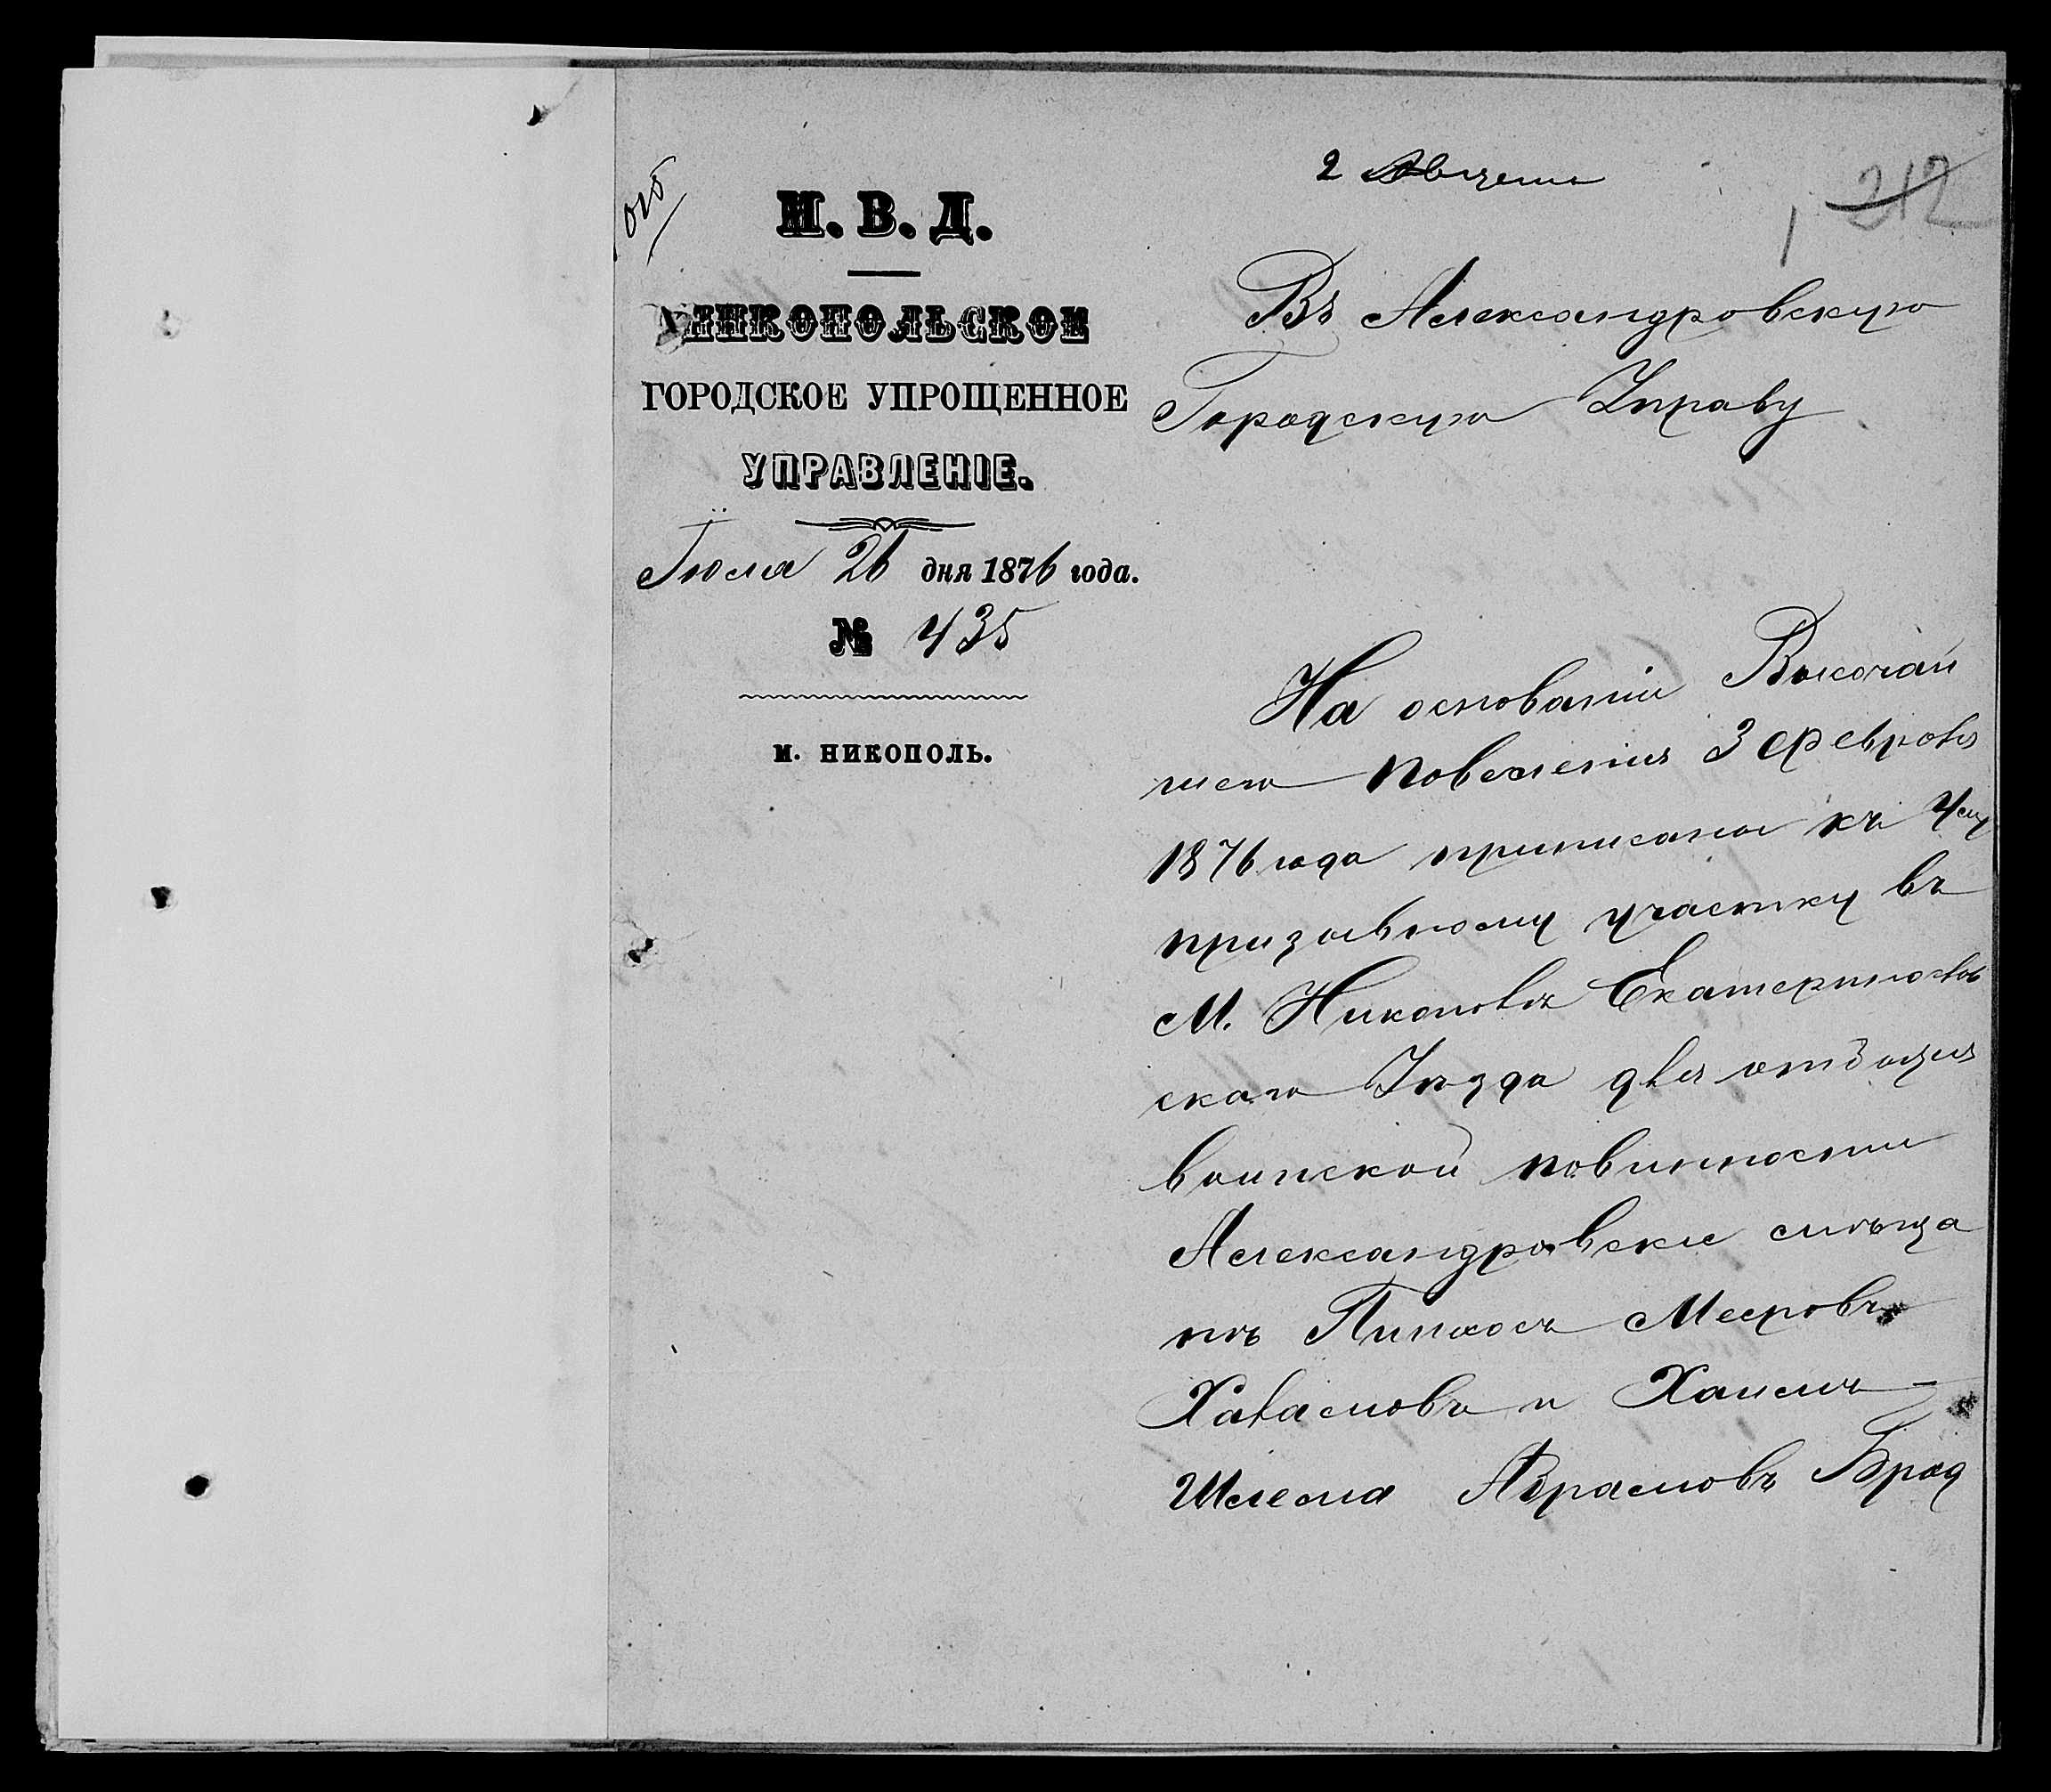 2 Августа
1 212
М. В. Д.
НИКОПОЛЬСКОЕ
ГОРОДСКОЕ УПРОЩЕННОЕ
УПРАВЛЕНІЕ.
Іюля 26 дня 1876 года.
№ 435
м. НИКОПОЛЬ.
Въ Александровскую
Городскую Управу
На основаніи Высочай
шего повеленія 3 февраля
1876 года приписаны къ 4му
призывному участку въ
М. Никополь Екатеринослав
скаго Уѣзда для отбыція
воинской повинности
Александровскіе мѣща
нѣ Пинхосъ Мееровъ
Халамовъ и Хаимъ-
Шлема Абрамовъ Брод